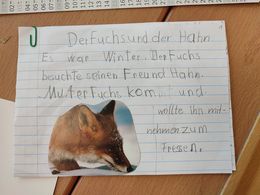 Der Fuchs und der Hahn
Es war Winter. Der Fuchs
besuchte seinen Freund Hahn.
Mutter Fuchs kommt und
wollte ihn mit-
nehmen zum
Fressen.